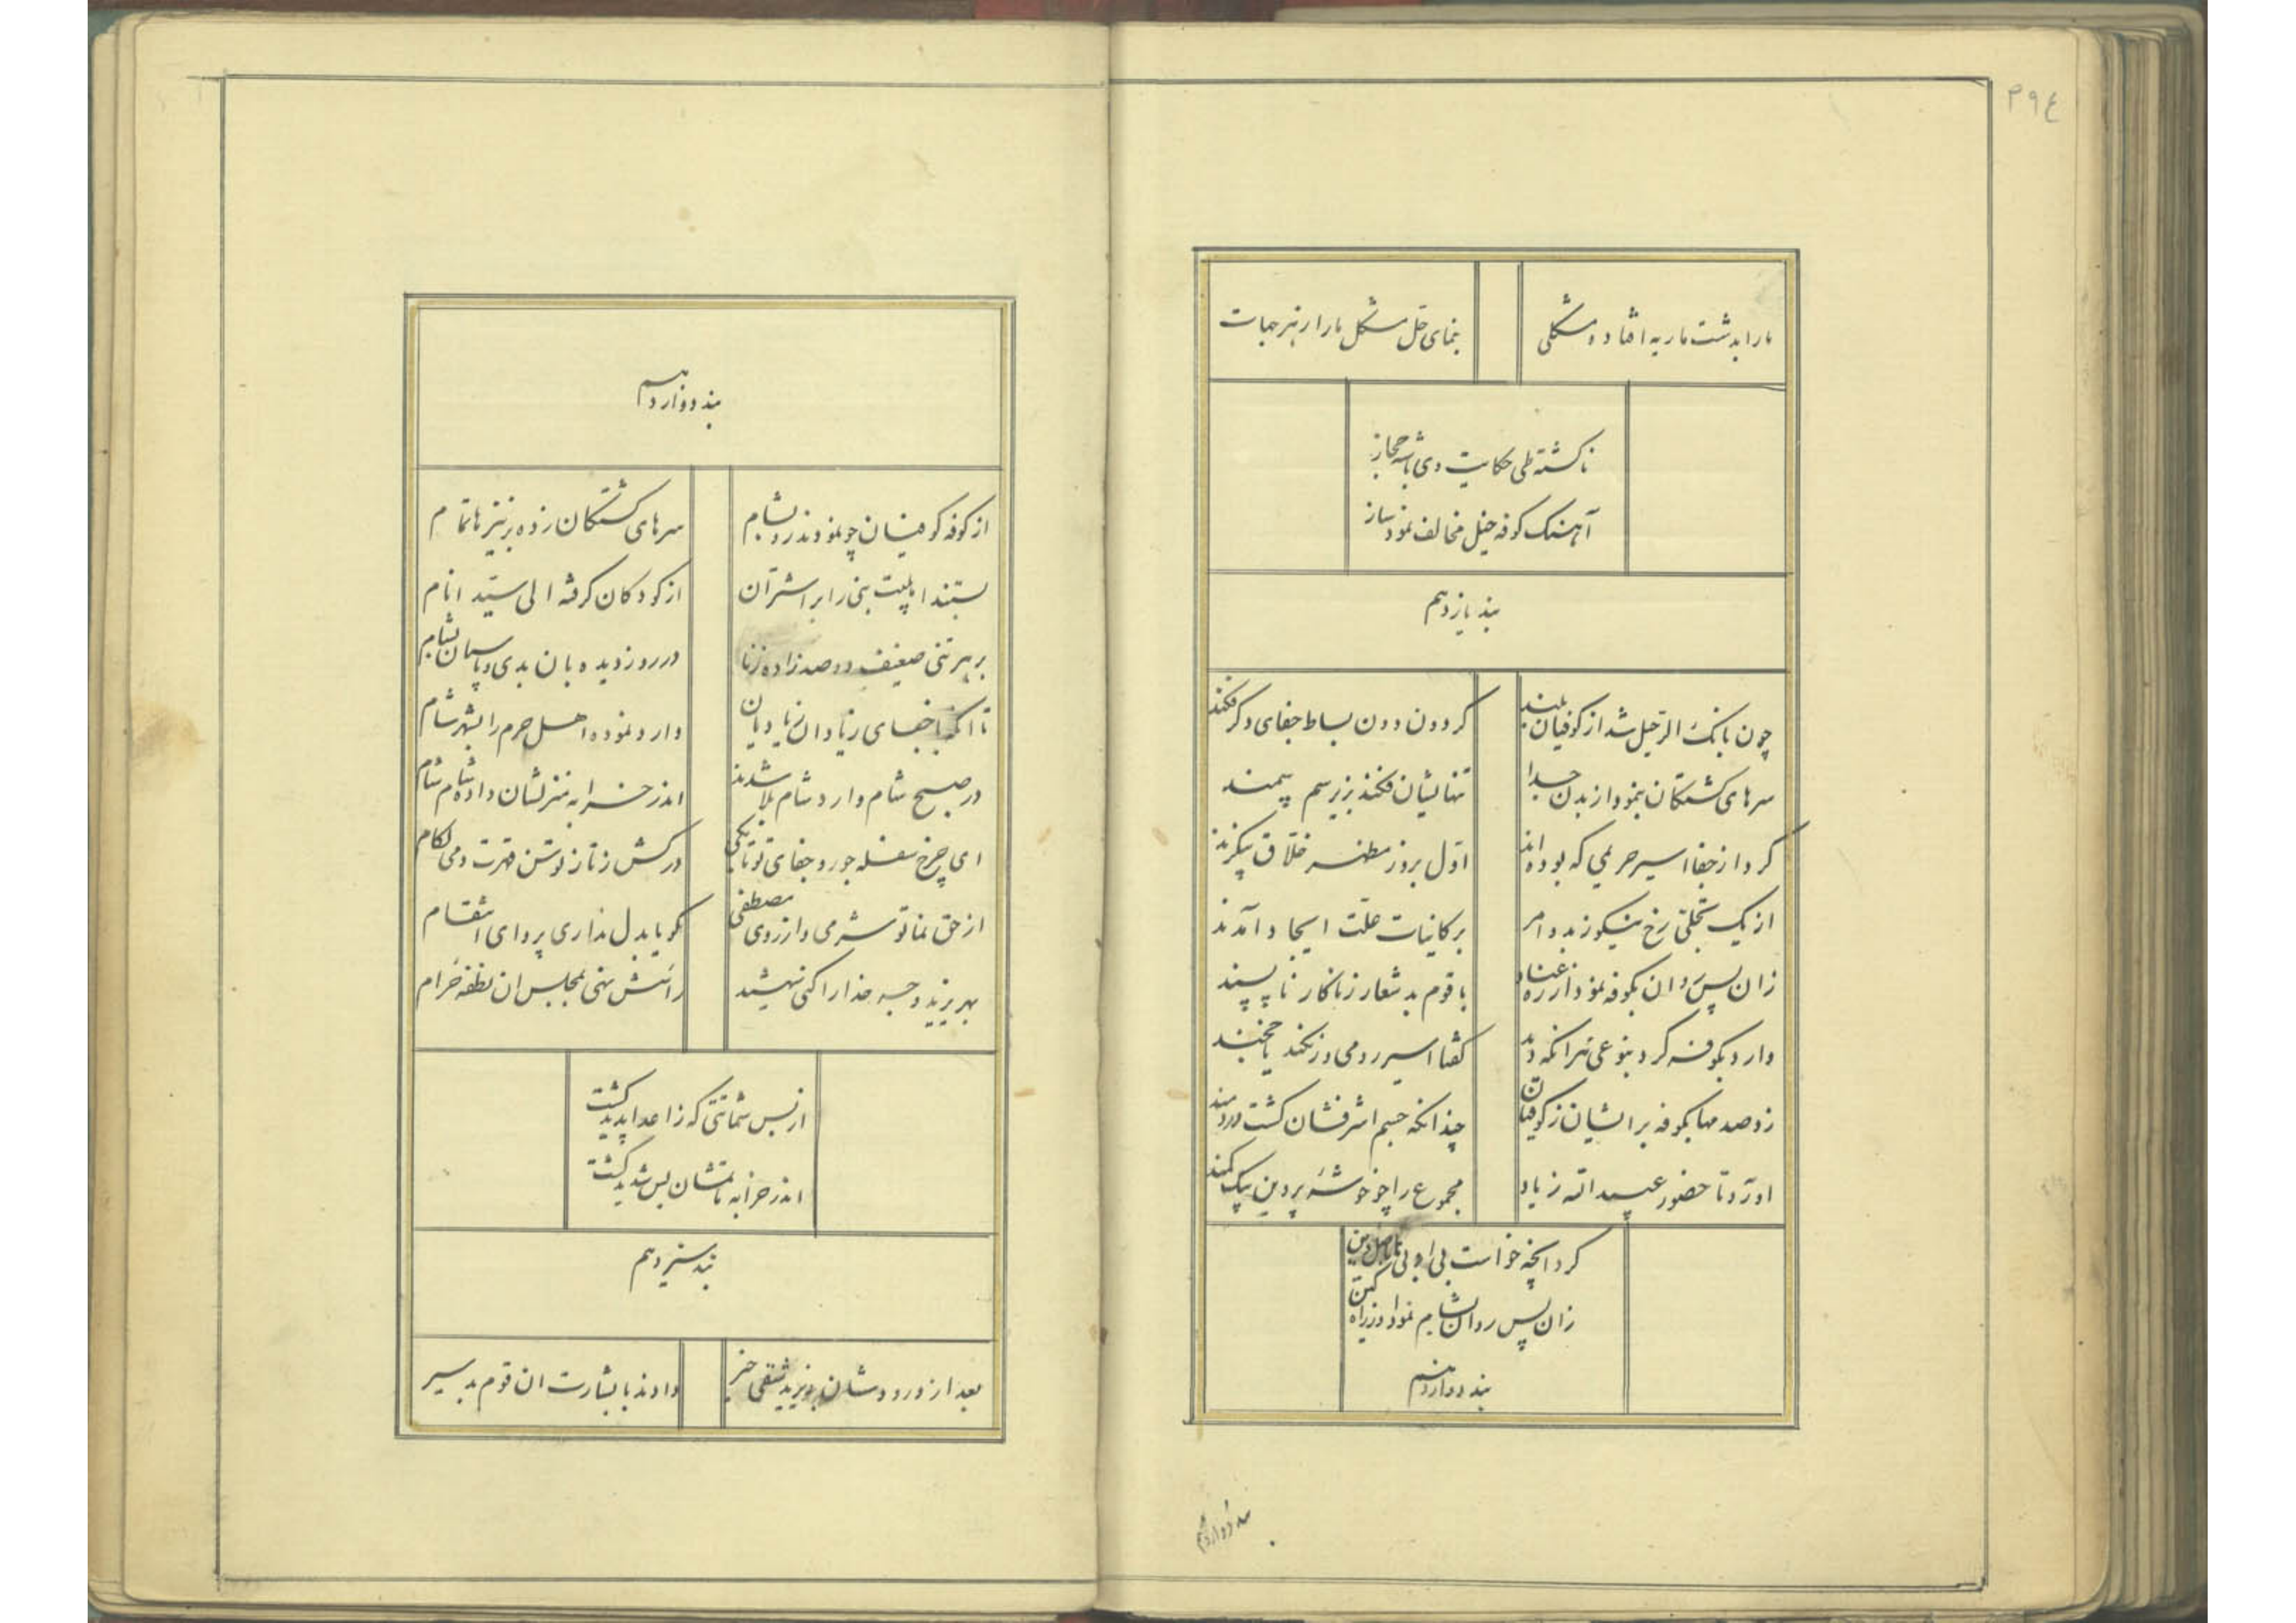 ۳۹٤
ما را بدشت ماریه افتاده مشکلی
بنمای حل مشکل ما را ز هر جهات
ناکشته طی حکایت وی با شه حجاز
آهنک کوفه خیل مخالف نمود ساز
بند یازدهم
چون بانک الرحیل شد از کوفیان بلند
کردون دون بساط جفای دکر فکند
سرهای کشتکان بنمود از بدن جدا
تنهایشان فکند بزیر سم سمند
کرد از جفا اسیر حریمی که بوده‌اند
اول بروز مظهر خلاق بیکزند
از یک تجلی رخ نیکو ز بدو امر
بر کاینات علت ایجاد آمدند
زان پس روان بکوفه نمود از ره عناد
با قوم بد شعار زناکار ناپسند
وارد بکوفه کرد بنوعی هرانکه دید
کفتا اسیر رومی و زنکند یا خجند
زد صدمها بکوفه بر ایشان ز کوفیان
چندانکه جسم اشرفشان کشت دردمند
آورد تا حضور عبیدالله زیاد
مجموع را چو خوشه پروین بیک کمند
کرد آنچه خواست بی ادبی با
زان پس روان بشام نمود او ز راه کین
بند دوازدهم
بند دوازدهم
بند دوازدهم
از کوفه کوفیان چو نمودند رو بشام
سرهای کشتکان زده بر نیزها تمام
بستند اهلبیت نبی را بر اشتران
از کودکان کرفته الی سید انام
بر هر تنی ضعیف دو صد زاده زنا
در روز دیده بان بدی و پاسبان بشام
تا آنکه با جفای زیاد آن زیادیان
وارد نموده اهل حرم را بشهر شام
در صبح شام وارد شام بلا شدند
اندر خرابه منزلشان داده شام شام
ای چرخ سفله جور و جفای تو تا بکی
درکش زتاز توسن قهرت دمی لکام
از حق نما تو شرمی و از روی مصطفی
کویا بدل نداری پروای انتقام
بهر یزید وجه خدا را کنی شهید
رأسش نهی بمجلس آن نطفه حرام
از بس شماتتی که ز اعدا پدید کشت
اندر خرابه ماتمشان بس شدید کشت
بند سیزدهم
بعد از ورودشان بیزید شقی خبر
دادند با بشارت آن قوم بد سیر